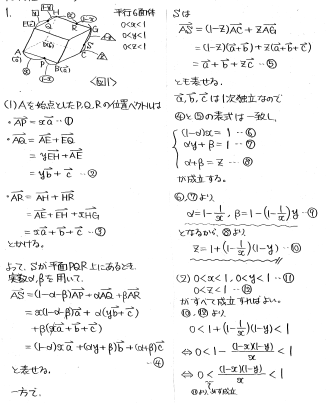 1.
平行6面体
0<x<1
0<y<1
0<z<1
<図1>
(1) Aを始点としたP,Q,Rの位置ベクトルは
・AP = xa …①
・AQ = AE + EQ
= yEH + AE
= yb + c …②
・AR = AH + HR
= AE + EH + xHG
= xa + b + c …③
とかける。
よって、Sが平面PQR上にあるとき
実数α,βを用いて、
AS = (1-α-β)AP + αAQ + βAR
= x(1-α-β)a + α(yb + c)
+ β(xa + b + c)
= (1-α)xa + (αy+β)b + (α+β)c
…④
と表せる。
一方で、
Sは
AS = (1-z)AC + zAG
= (1-z)(a+b) + z(a+b+c)
= a + b + zc …⑤
とも表せる。
a, b, cは1次独立なので
④と⑤の表式は一致し、
(1-α)x = 1 …⑥
αy+β = 1 …⑦
α+β = z …⑧
が成立する。
⑥,⑦より、
α=1-1/x, β=1-(1-1/x)y …⑨
となるから、⑧より
z=1+(1-1/x)(1-y) …⑩
(2) 0<x<1, 0<y<1 …⑪
0<z<1 …⑫
がすべて成立すればよい。
⑩,⑫より、
0<1+(1-1/x)(1-y)<1
⇔ 0<1-(1-x)(1-y)/x<1
⇔ 0<(1-x)(1-y)/x<1